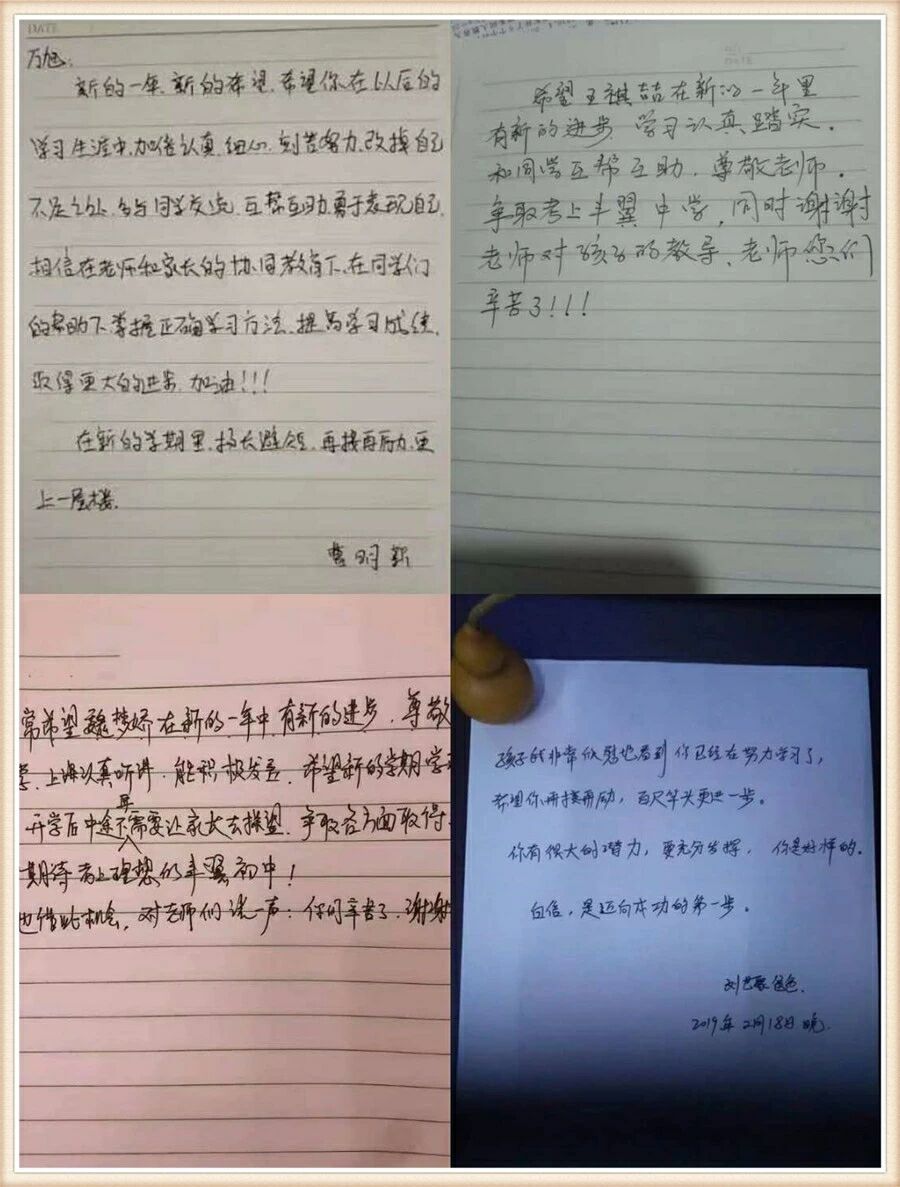 DATE
万旭:
新的一年,新的希望,希望你在以后的
学习生涯中,加倍认真,细心,刻苦努力,改掉自己
不足之处,多与同学交流,互帮互助,勇于表现自己,
相信在老师和家长的协同教育下,在同学们
的帮助下,掌握正确学习方法,提高学习成绩,
取得更大的进步,加油!!!
在新的学期里,扬长避短,再接再厉,更
上一层楼。
希望王祺喆在新的一年里
有新的进步 学习认真,踏实。
和同学互帮互助,尊敬老师。
争取考上丰翼中学,同时谢谢
老师对孩子的教导、老师您们
辛苦了!!!
常希望魏梦娇在新的一年中有新的进步,尊敬
学,上课认真听讲,能积极发言,希望新的学期学
开学后中途不再需要让家长去操盘,争取各方面取得
期待考上理想的丰翼初中!
也借此机会,对老师们说一声:你们辛苦了,谢谢
孩子我非常欣慰地看到你已经在努力学习了,
希望你再接再励,百尺竿头更进一步。
你有很大的潜力,要充分发挥,你是好样的。
自信,是迈向成功的第一步。
2019年2月18日晚